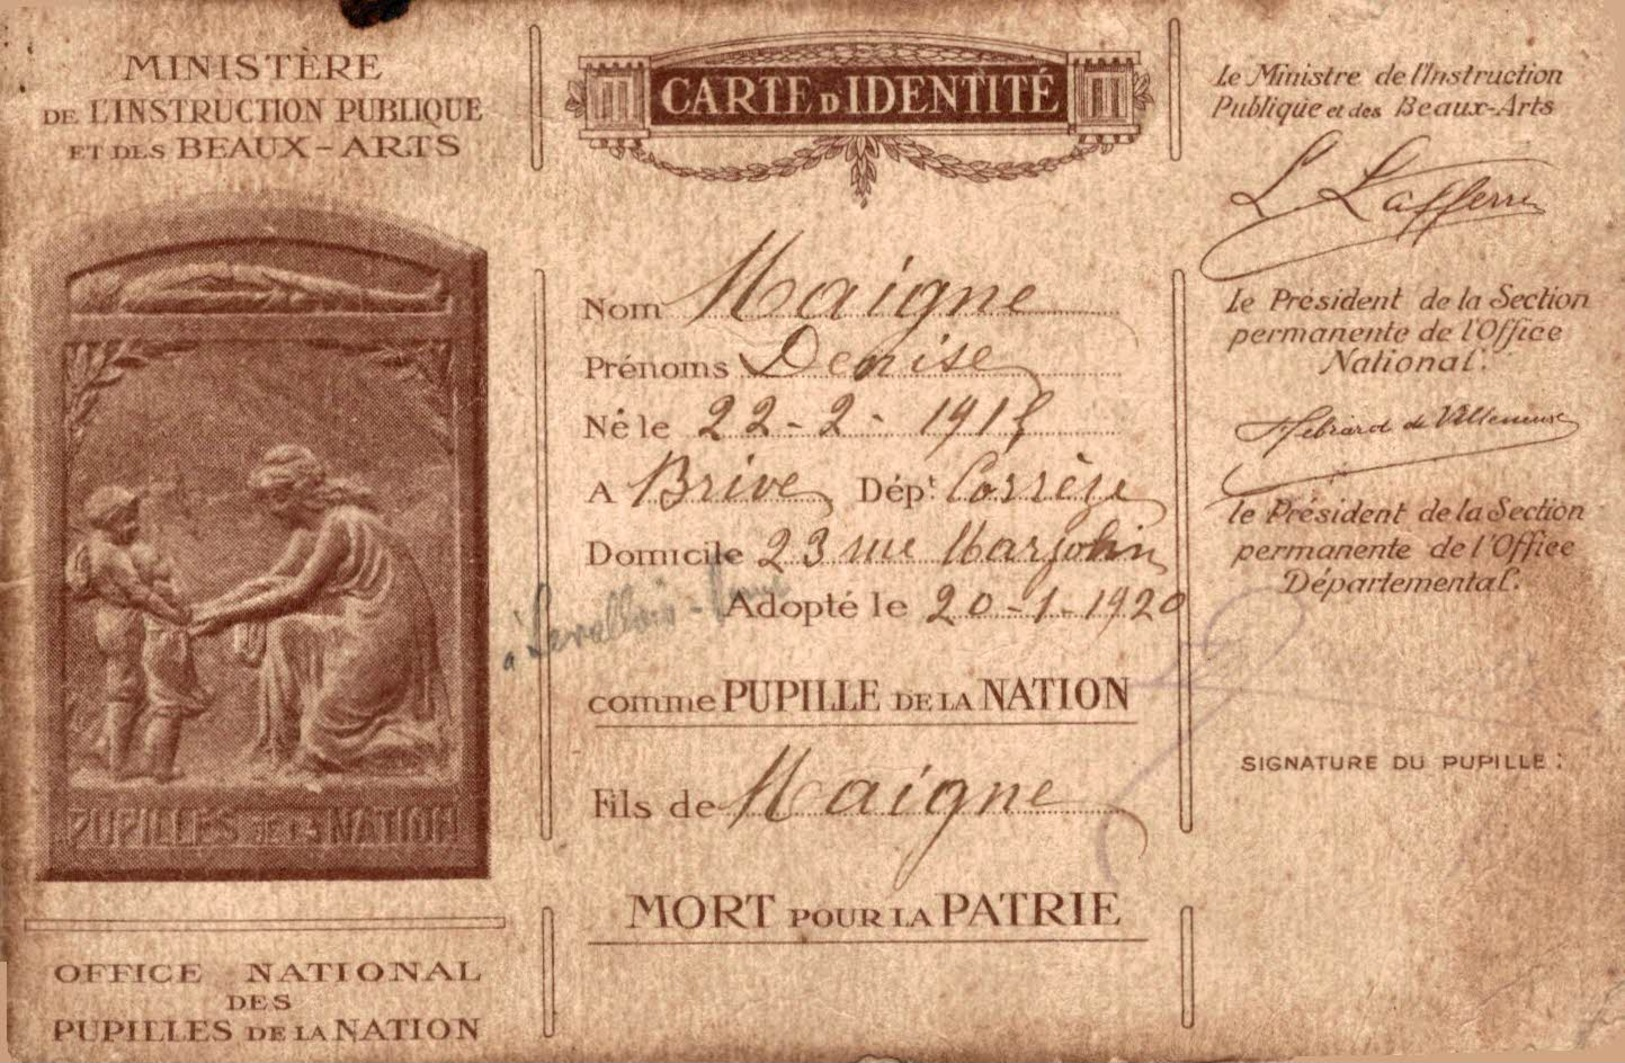 MINISTÈRE
DE L'INSTRUCTION PUBLIQUE
ET DES BEAUX-ARTS
PUPILLES DE LA NATION
OFFICE NATIONAL
DES
PUPILLES DE LA NATION
CARTE D'IDENTITÉ
Nom Maigne
Prénoms Denise
Né le 22-2-1915
A Brive Dépt Corrèze
Domicile 23 rue Marjolin
à Levallois-Perret
Adopté le 20-1-1920
comme PUPILLE DE LA NATION
Fils de Maigne
MORT POUR LA PATRIE
Le Ministre de l'Instruction
Publique et des Beaux-Arts
L Lafferre
Le Président de la Section
permanente de l'Office
National.
Hébrard de Villeneuve
Le Président de la Section
permanente de l'Office
Départemental.
SIGNATURE DU PUPILLE :